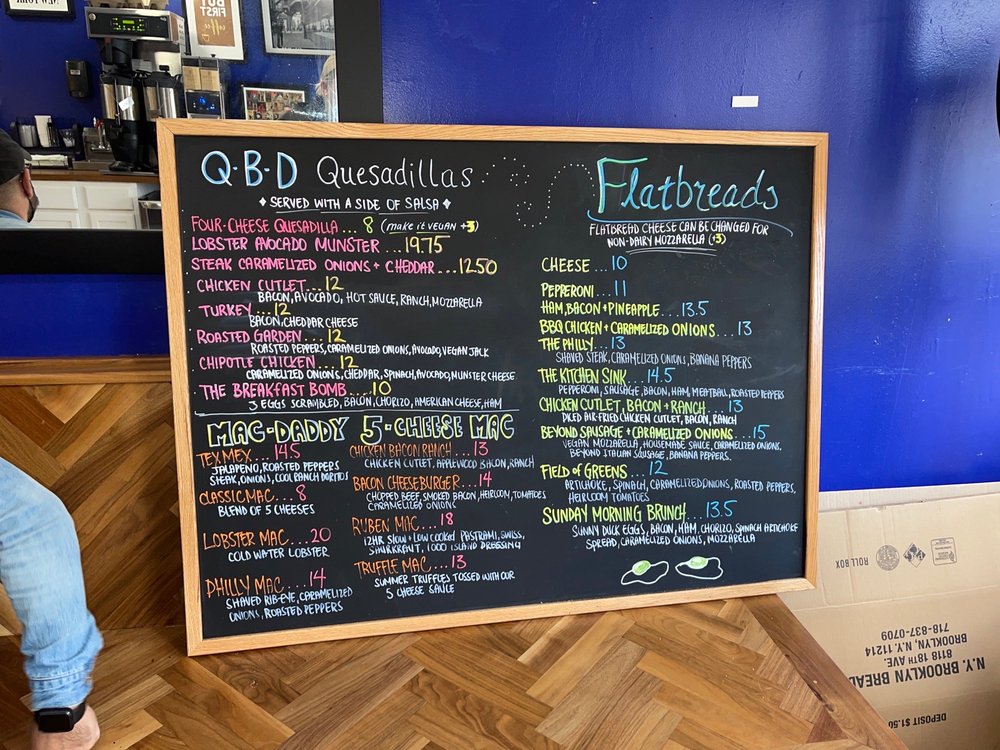 BUT
FIRST
COFFEE
Q·B·D Quesadillas
♦ SERVED WITH A SIDE OF SALSA ♦
FOUR-CHEESE QUESADILLA... 8 (make it VEGAN +3)
LOBSTER AVOCADO MUNSTER ...19.75
STEAK CARAMELIZED ONIONS + CHEDDAR...12.50
CHICKEN CUTLET...12
BACON, AVOCADO, HOT SAUCE, RANCH, MOZZARELLA
TURKEY...12
BACON, CHEDDAR CHEESE
ROASTED GARDEN...12
ROASTED PEPPERS, CARAMELIZED ONIONS, AVOCADO, VEGAN JACK
CHIPOTLE CHICKEN...12
CARAMELIZED ONIONS, CHEDDAR, SPINACH, AVOCADO, MUNSTER CHEESE
THE BREAKFAST BOMB...10
3 EGGS SCRAMBLED, BACON, CHORIZO, AMERICAN CHEESE, HAM
MAC-DADDY 5-CHEESE MAC
TEX MEX... 14.5
JALAPENO, ROASTED PEPPERS
STEAK, ONIONS, COOL RANCH DORITOS
CLASSIC MAC... 8
BLEND OF 5 CHEESES
LOBSTER MAC...20
COLD WATER LOBSTER
PHILLY MAC....14
SHAVED RIB-EYE, CARAMELIZED
ONIONS, ROASTED PEPPERS
CHICKEN BACON RANCH...13
CHICKEN CUTLET, APPLEWOOD BACON, RANCH
BACON CHEESEBURGER...14
CHOPPED BEEF, SMOKED BACON, HEIRLOOM, TOMATOES
CARAMELIZED ONIONS
RUBEN MAC...18
12HR SLOW + LOW COOKED PASTRAMI, SWISS,
SAUERKRAUT, 1000 ISLAND DRESSING
TRUFFLE MAC...13
SUMMER TRUFFLES TOSSED WITH OUR
5 CHEESE SAUCE
Flatbreads
FLATBREAD CHEESE CAN BE CHANGED FOR
NON-DAIRY MOZZARELLA (+3)
CHEESE...10
PEPPERONI...11
HAM, BACON + PINEAPPLE...13.5
BBQ CHICKEN + CARAMELIZED ONIONS...13
THE PHILLY...13
SHAVED STEAK, CARAMELIZED ONIONS, BANANA PEPPERS
THE KITCHEN SINK...14.5
PEPPERONI, SAUSAGE, BACON, HAM, MEATBALL, ROASTED PEPPERS
CHICKEN CUTLET, BACON + RANCH...13
DICED AIR-FRIED CHICKEN CUTLET, BACON, RANCH
BEYOND SAUSAGE + CARAMELIZED ONIONS...15
VEGAN MOZZARELLA, HOUSEMADE SAUCE, CARAMELIZED ONIONS,
BEYOND ITALIAN SAUSAGE, BANANA PEPPERS.
FIELD OF GREENS...12
ARTICHOKE, SPINACH, CARAMELIZED ONIONS, ROASTED PEPPERS,
HEIRLOOM TOMATOES
SUNDAY MORNING BRUNCH...13.5
SUNNY DUCK EGGS, BACON, HAM, CHORIZO, SPINACH ARTICHOKE
SPREAD, CARAMELIZED ONIONS, MOZZARELLA
ROLL BOX
N.Y. BROOKLYN BREAD
8118 18TH AVE.
BROOKLYN, N.Y. 11214
718-837-0709
DEPOSIT $1.50